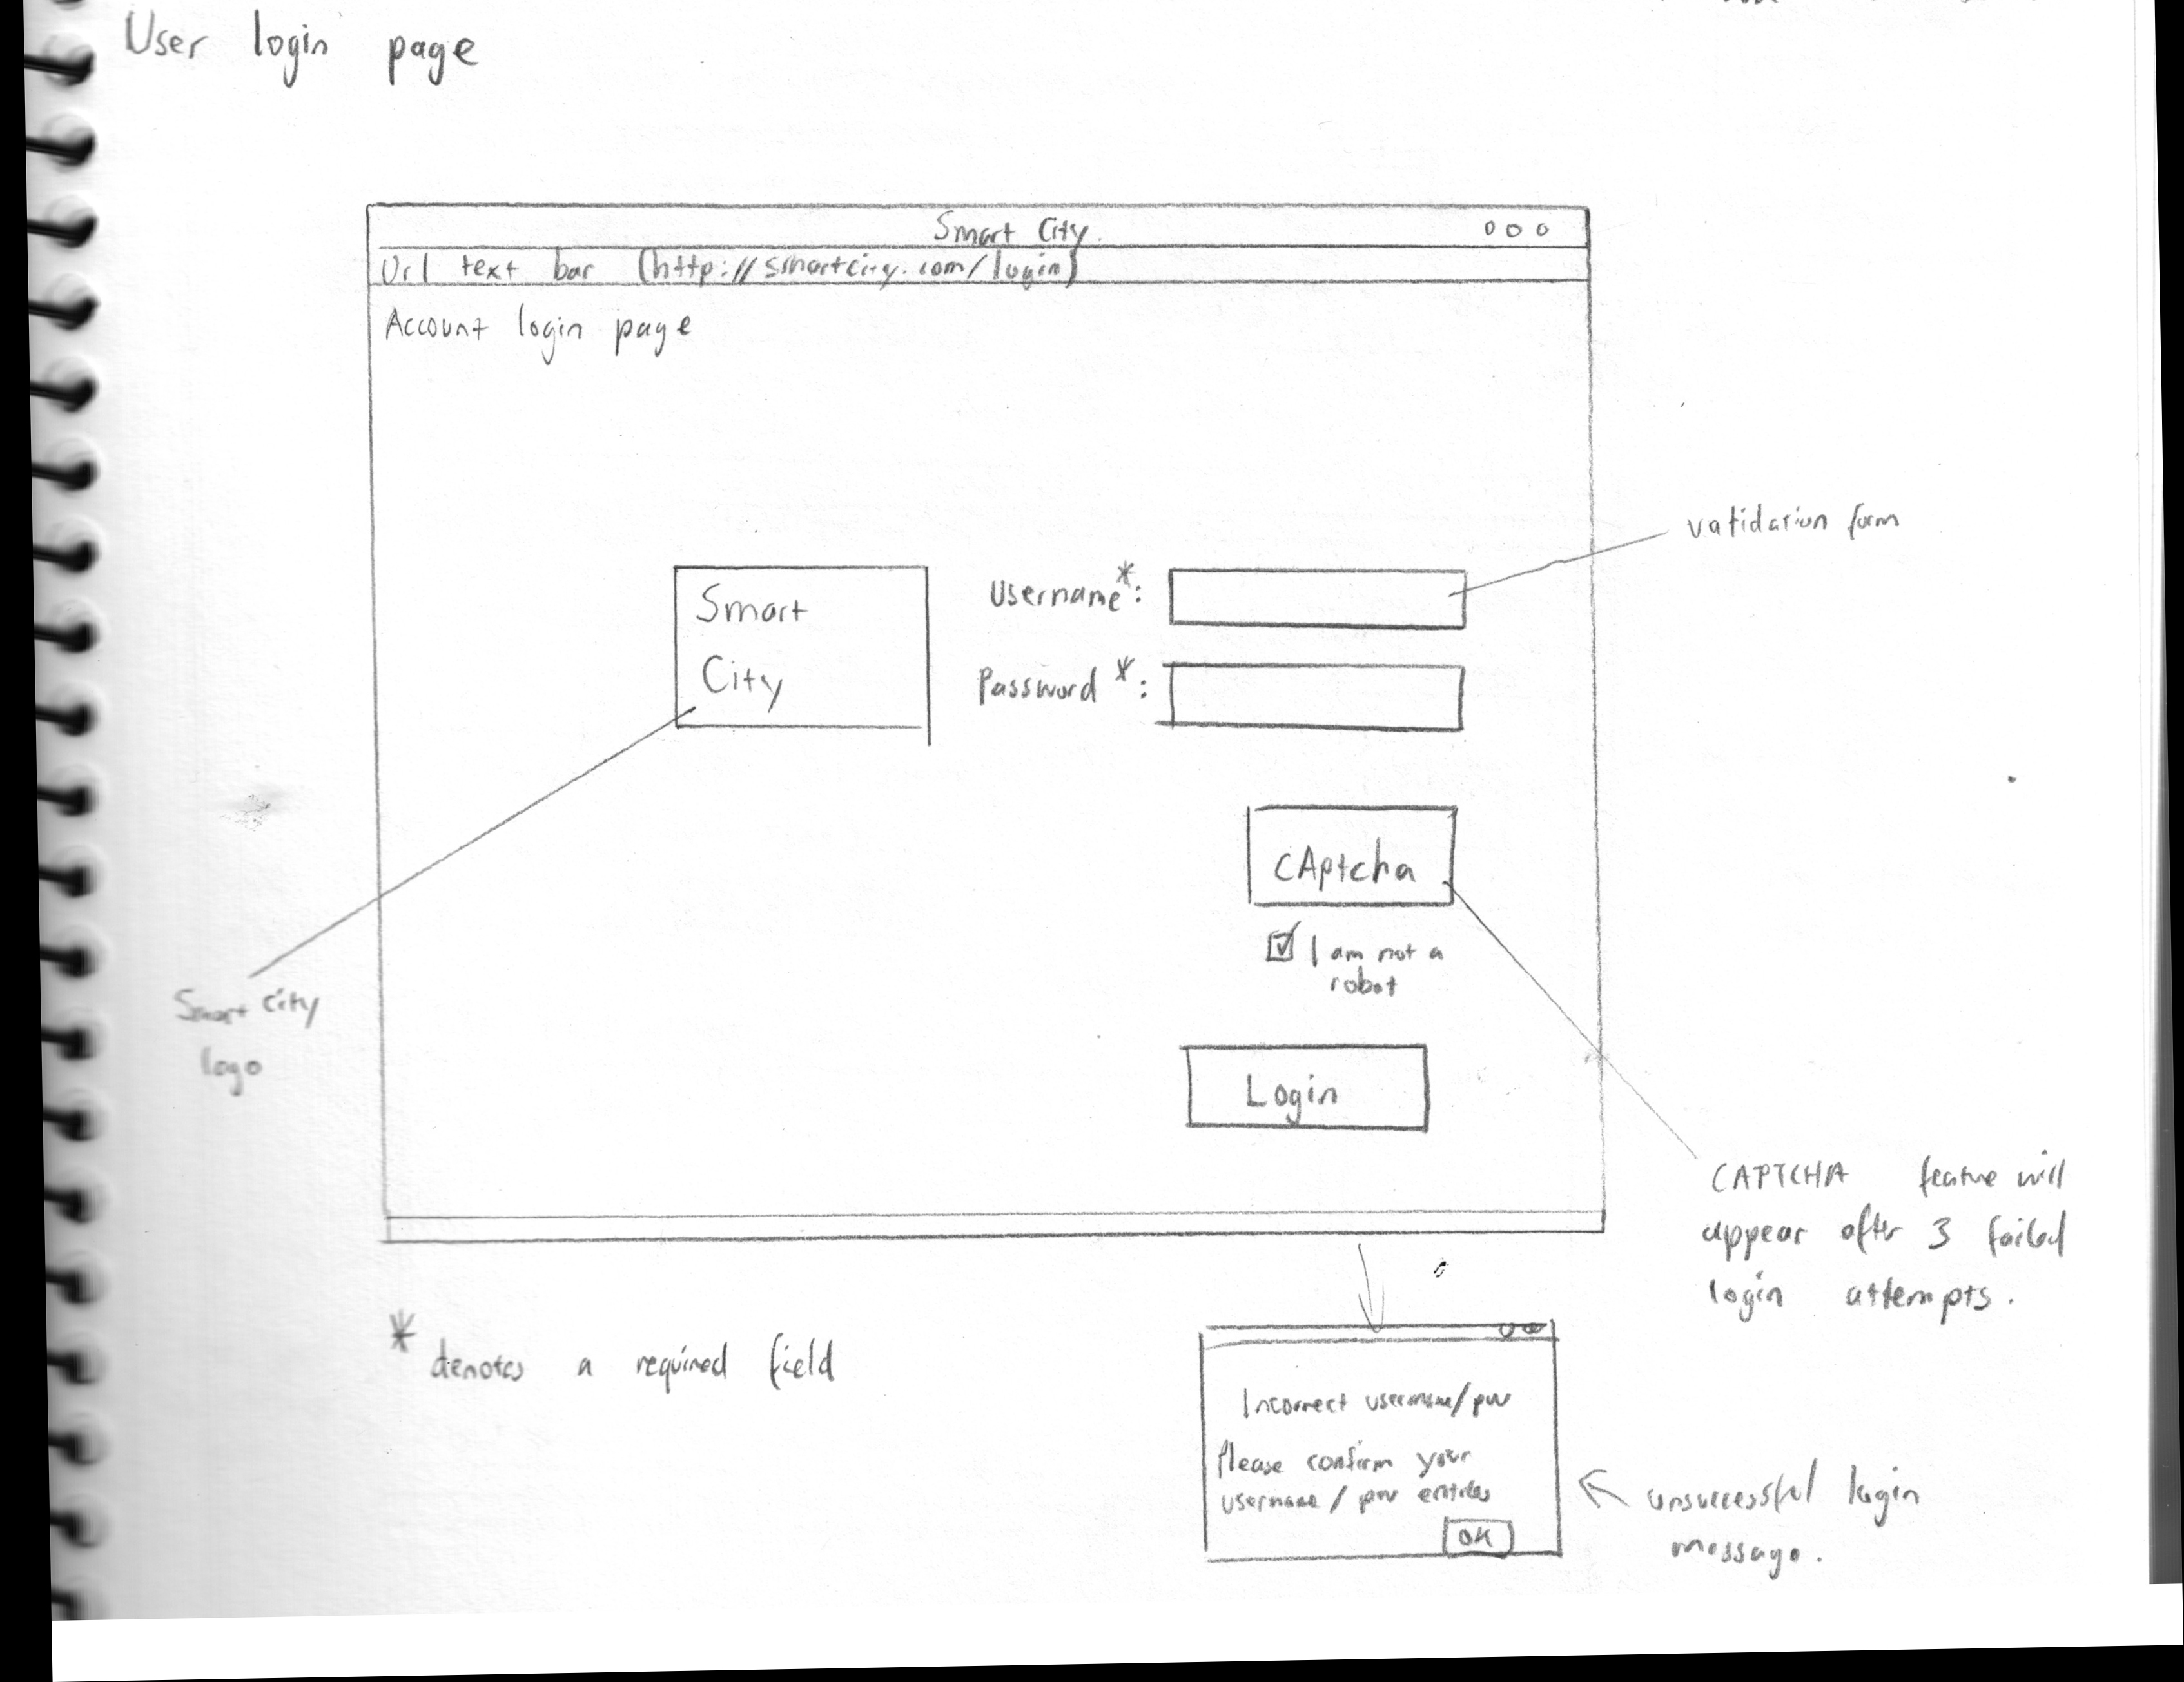 User login page
Smart City
Url text bar (http://smartcity.com/login)
Account login page
validation form
Smart
City
Username*:
Password *:
CAptcha
I am not a
robot
Smart City
logo
Login
CAPTCHA feature will
appear after 3 failed
login attempts.
* denotes a required field
Incorrect username/pw
Please confirm your
username / pw entries
OK
unsuccessful login
message.